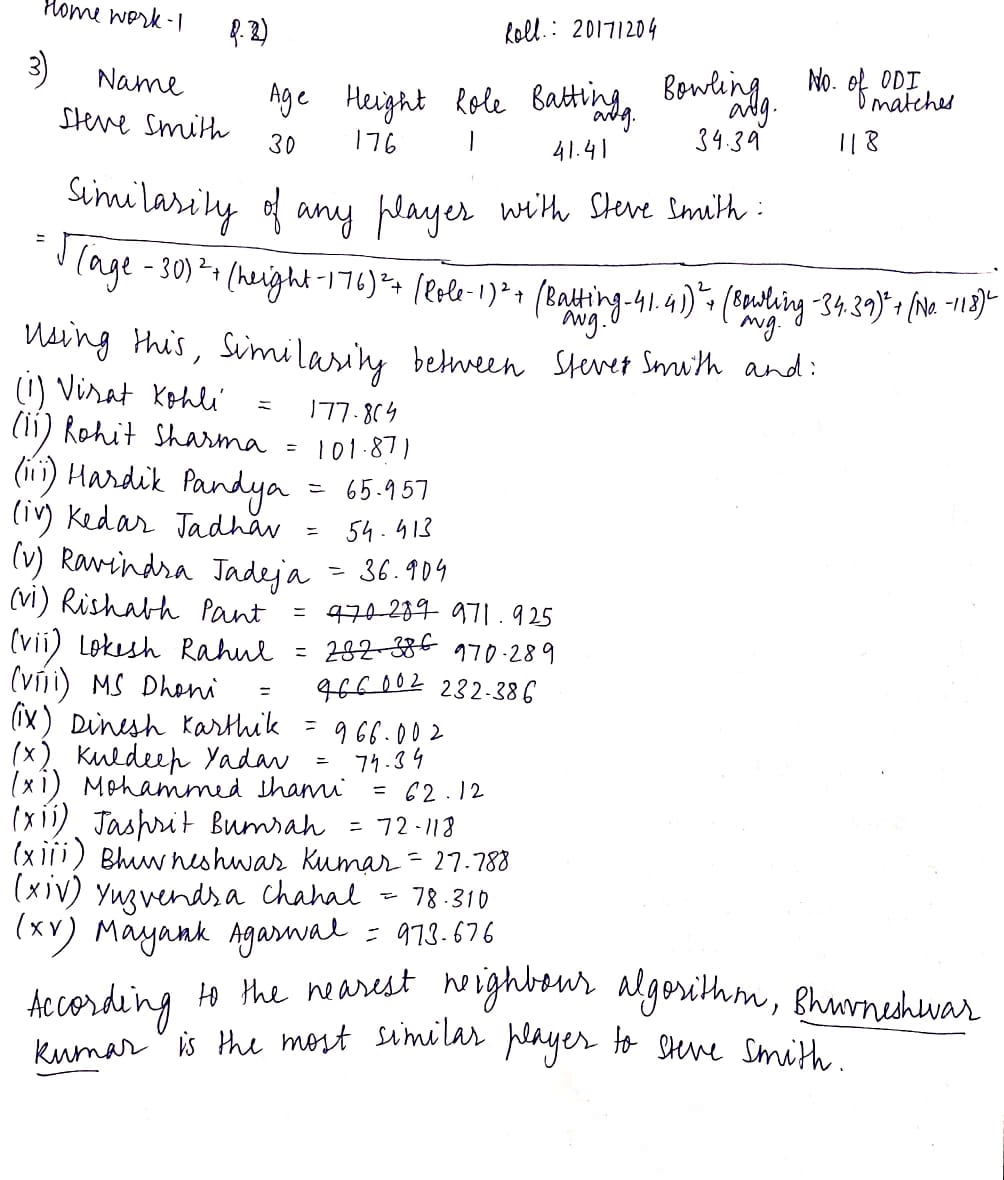 Home work-1 Q.3) Roll.: 20171204
3) Name Age Height Role Batting avg. Bowling avg. No. of ODI matches
Steve Smith 30 176 1 41.41 34.39 118
Similarity of any player with Steve Smith :
= √(age - 30)² + (height - 176)² + (Role - 1)² + (Batting avg. - 41.41)² + (Bowling avg. - 34.39)² + (No. - 118)²
Using this, Similarity between Steve Smith and :
(i) Virat Kohli = 177.864
(ii) Rohit Sharma = 101.871
(iii) Hardik Pandya = 65.957
(iv) Kedar Jadhav = 54.413
(v) Ravindra Jadeja = 36.904
(vi) Rishabh Pant = 970.289 971.925
(vii) Lokesh Rahul = 232.386 970.289
(viii) MS Dhoni = 966.002 232.386
(ix) Dinesh Karthik = 966.002
(x) Kuldeep Yadav = 74.34
(xi) Mohammed Shami = 62.12
(xii) Jasprit Bumrah = 72.118
(xiii) Bhuvneshwar Kumar = 27.788
(xiv) Yuzvendra Chahal = 78.310
(xv) Mayank Agarwal = 973.676
According to the nearest neighbour algorithm, Bhuvneshwar
Kumar is the most similar player to Steve Smith.